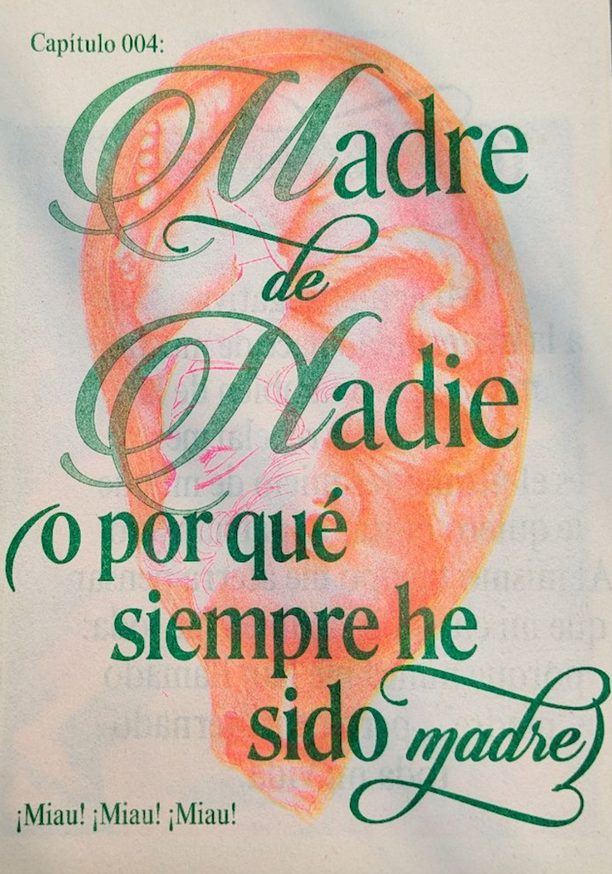 Capítulo 004:
Madre
de
Nadie
(o por qué
siempre he
sido madre)
¡Miau! ¡Miau! ¡Miau!